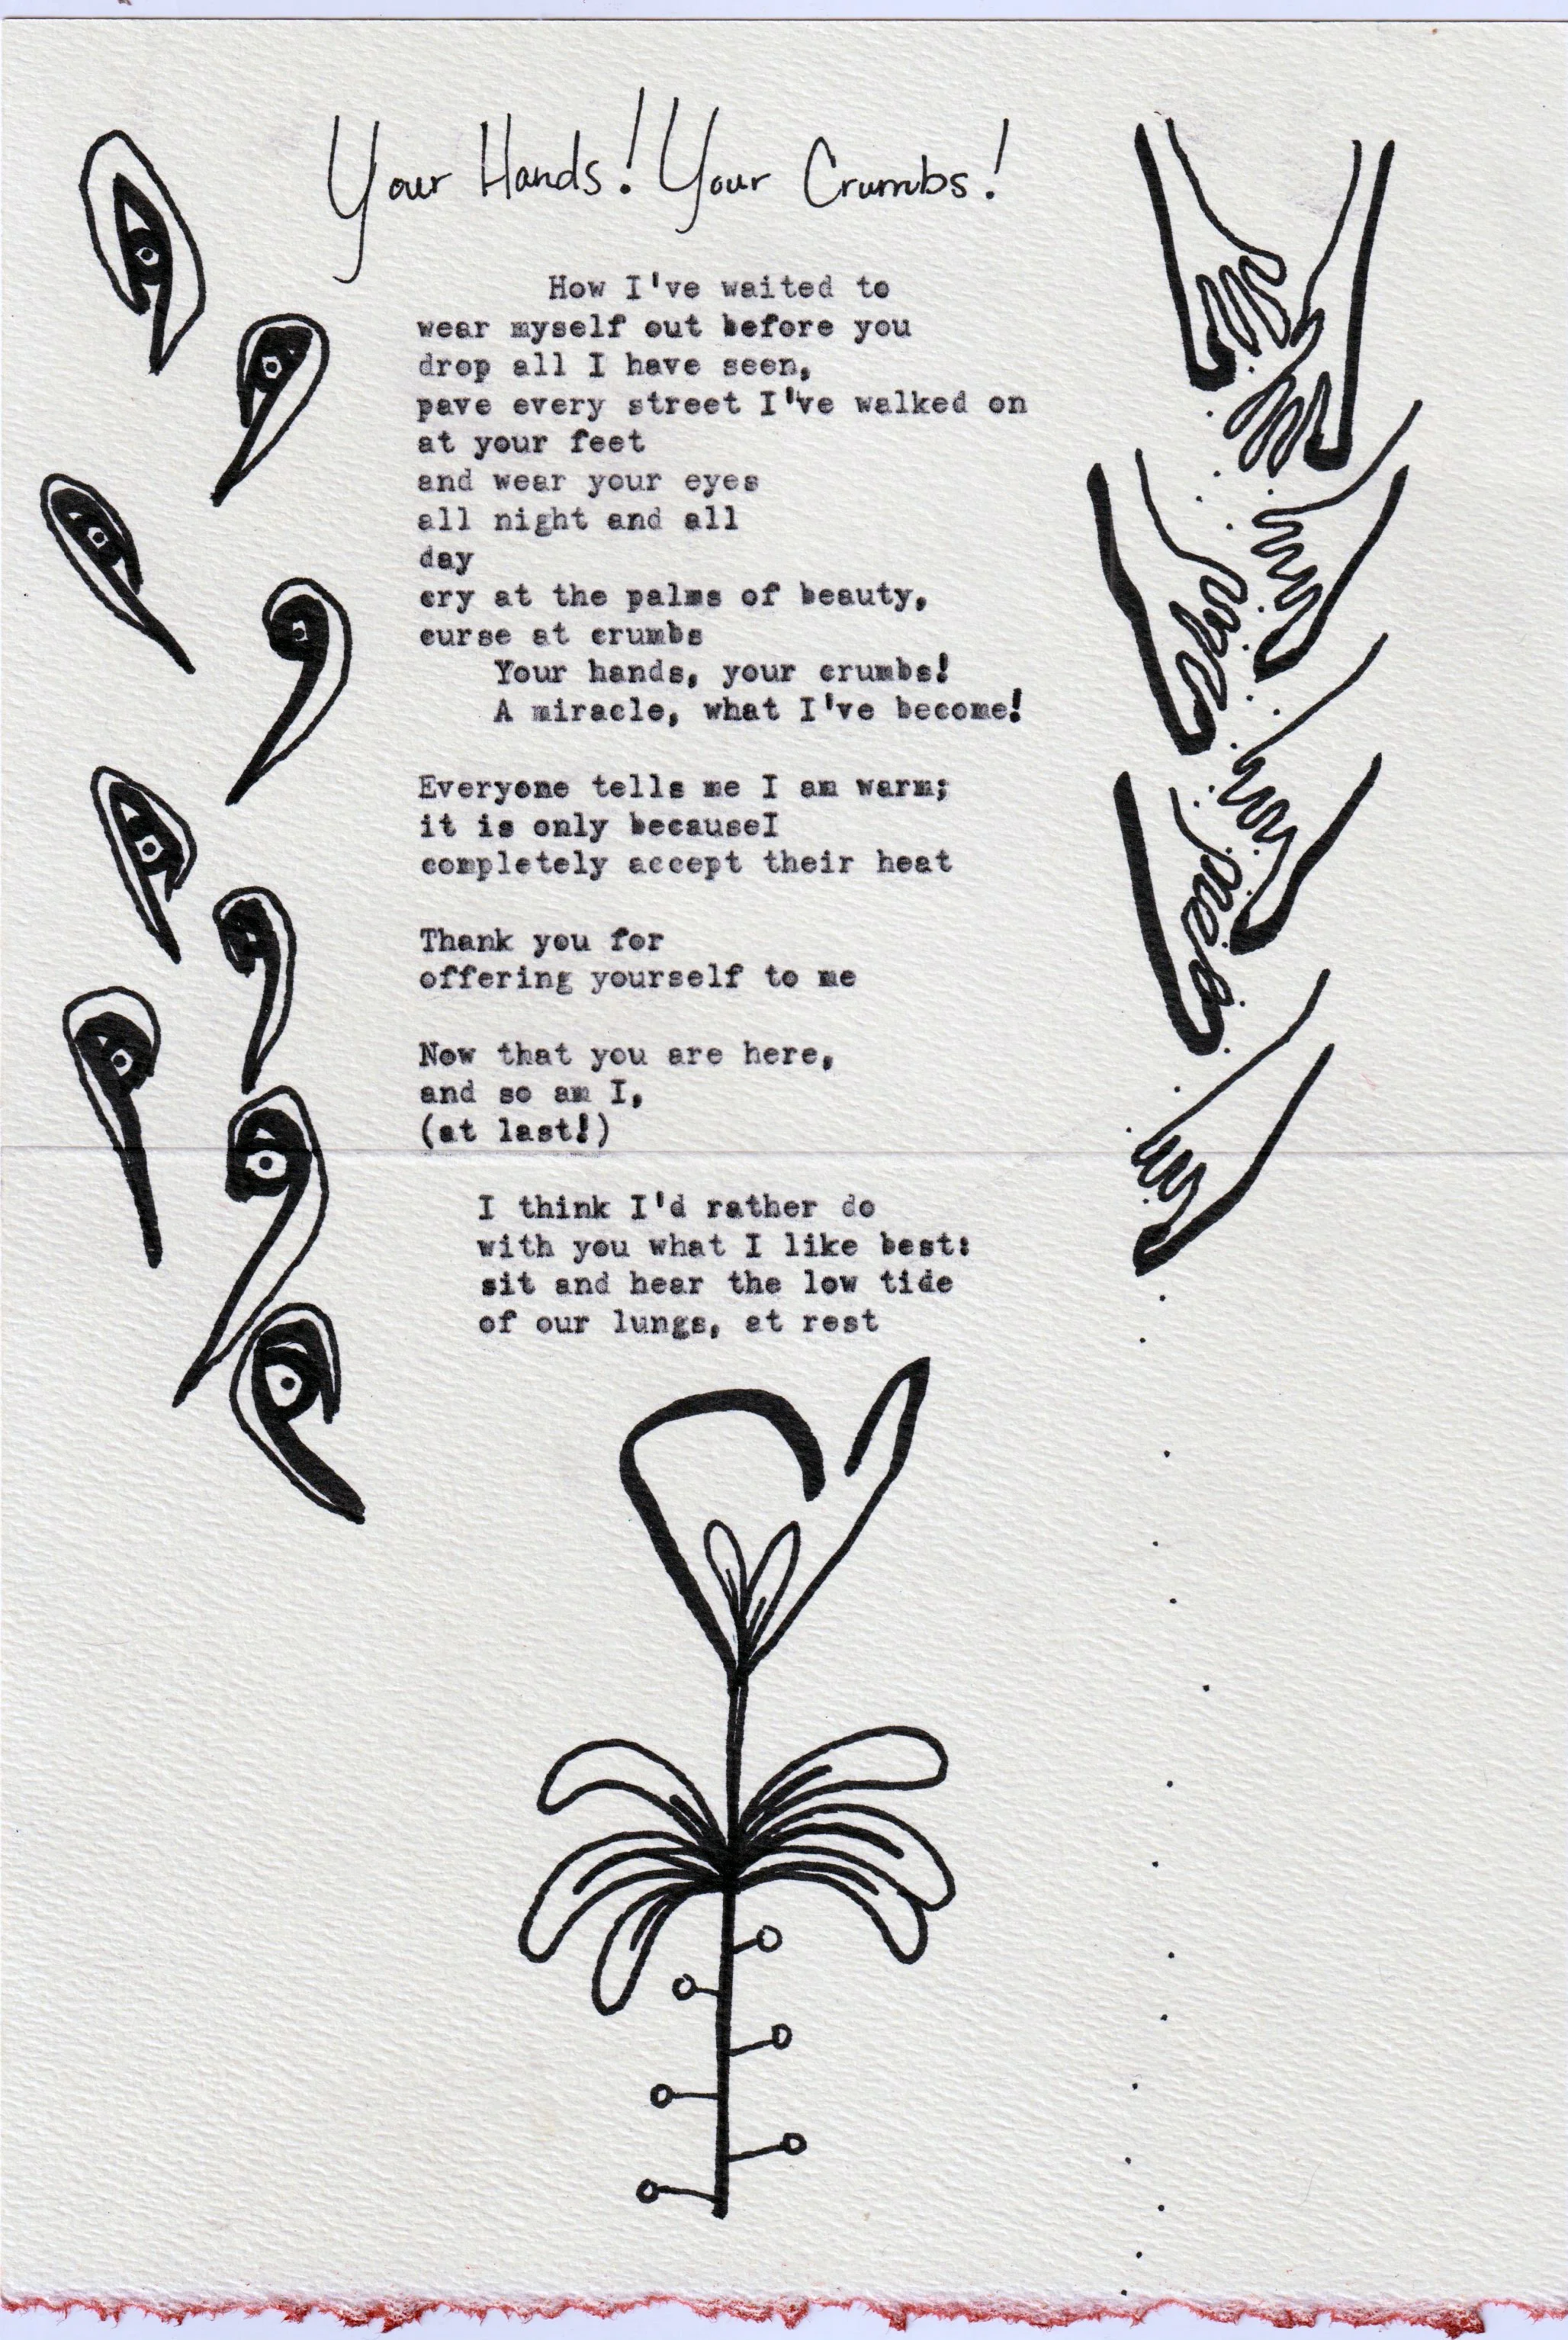 Your Hands! Your Crumbs!
How I've waited to
wear myself out before you
drop all I have seen,
pave every street I've walked on
at your feet
and wear your eyes
all night and all
day
cry at the palms of beauty,
curse at crumbs
Your hands, your crumbs!
A miracle, what I've become!
Everyone tells me I am warm;
it is only becauseI
completely accept their heat
Thank you for
offering yourself to me
Now that you are here,
and so am I,
(at last!)
I think I'd rather do
with you what I like best:
sit and hear the low tide
of our lungs, at rest